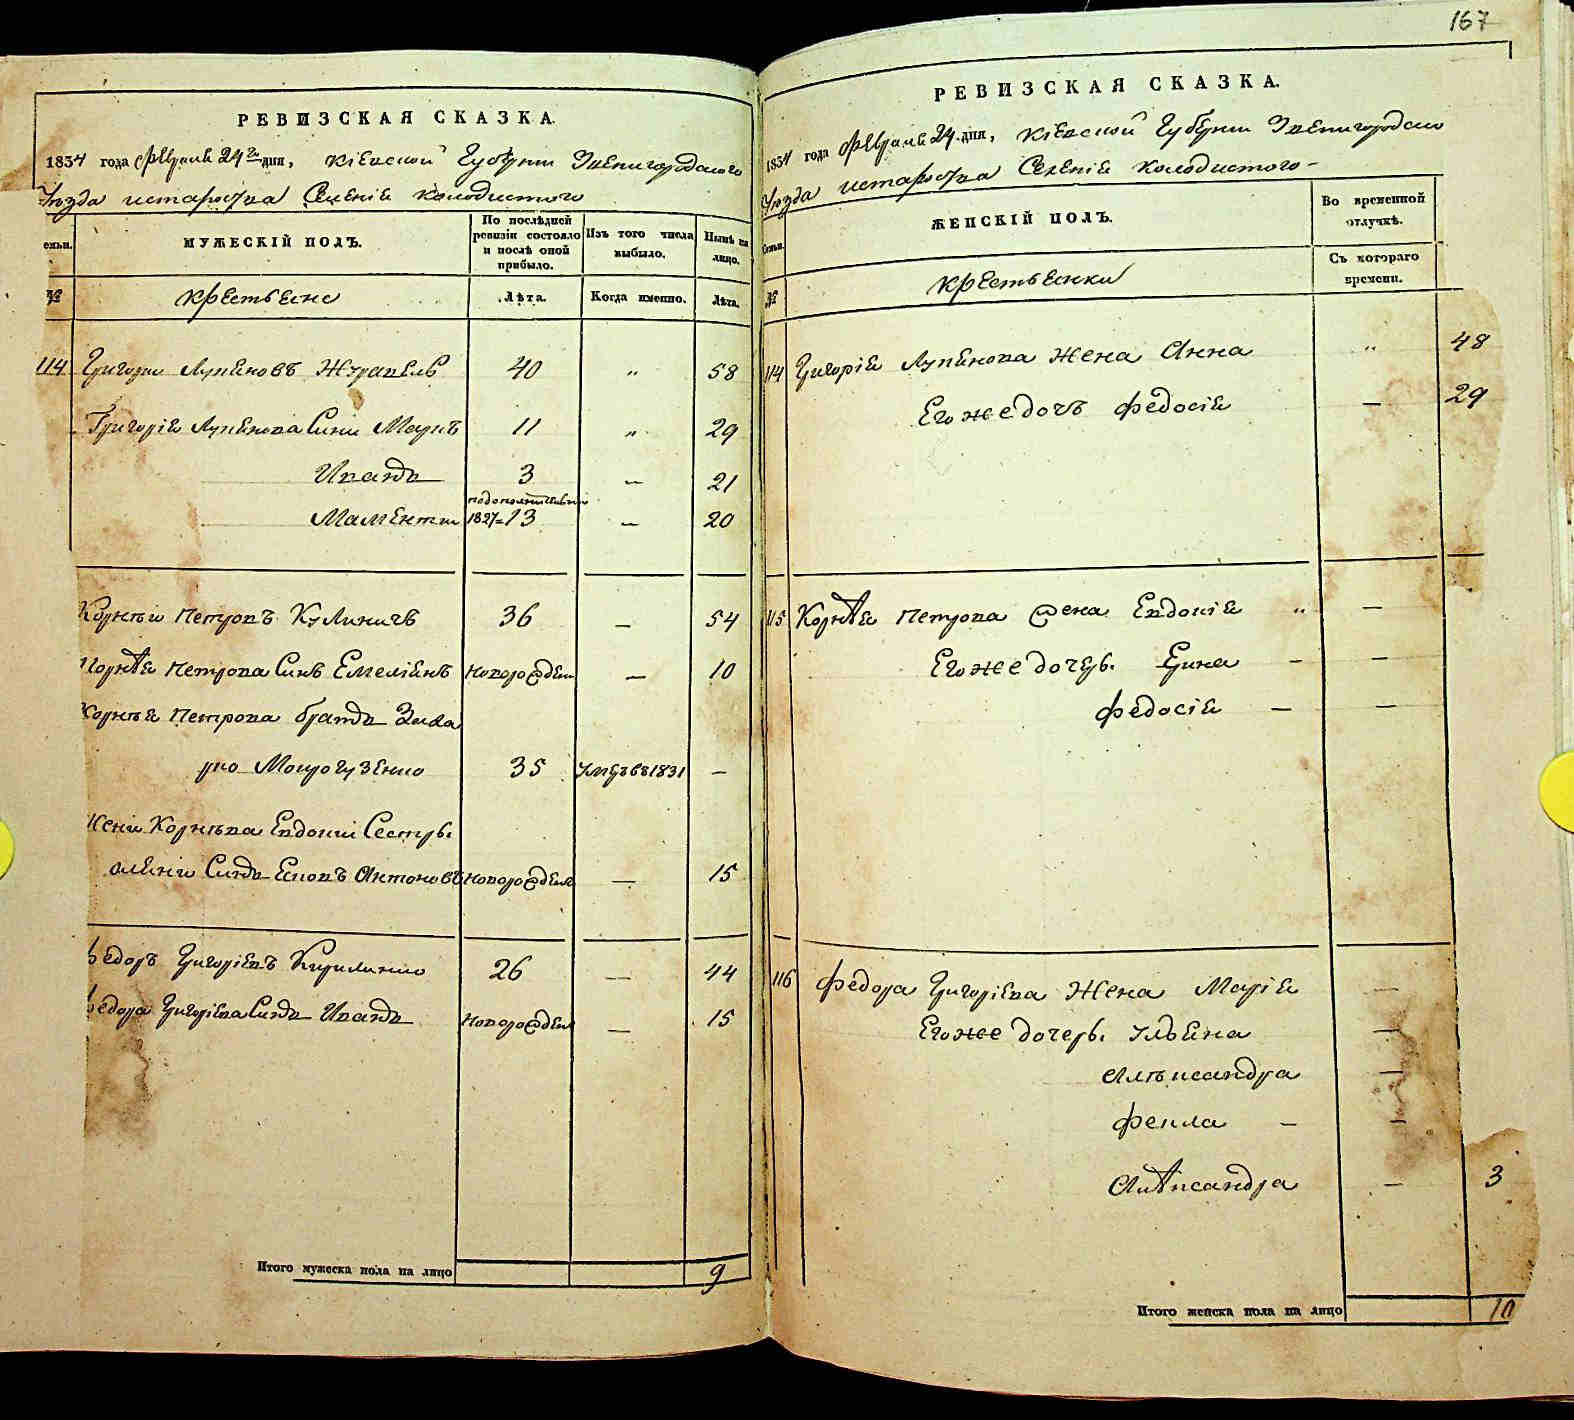 167
РЕВИЗСКАЯ СКАЗКА.
1834 года февраля 24го дня, Кіевской Губерніи Звенигородского
Уезда староства Селенія Колодистого
Семьи. МУЖЕСКІЙ ПОЛЪ. По послѣдней ревизіи состояло и послѣ оной прибыло. Изъ того числа выбыло. Нынѣ на лицо.
№ крестьяне Лѣта. Когда именно. Лѣта.
114 Григорій Лукяновъ Журавель 40 " 58
Григорія Лукянова Сини Маркъ 11 " 29
Иванъ 3 — 21
1827 13
Маментій — 20
Корнѣй Петровъ Кулиничъ 36 — 54
Корнѣя Петрова Синъ Емеліянъ новорожден — 10
Корнѣя Петрова братъ Заха
рко 35 умеръ въ 1831 —
жени Корнѣва Евдокіи Сестры
Синъ Антоновъ новорожден — 15
Федоръ Григоріевъ Кириленко 26 — 44
Федора Григоріева Синъ Иванъ новорожден — 15
Итого мужеска пола на лицо 9
РЕВИЗСКАЯ СКАЗКА.
1834 года февраля 24 дня, Кіевской Губерніи Звенигородского
Уезда староства Селенія Колодистого —
Семьи. ЖЕНСКІЙ ПОЛЪ. Во временной отлучкѣ.
№ крестьянки Съ котораго времени.
114 Григорія Лукянова жена Анна " 48
Его же дочъ Федосія — 29
115 Корнѣя Петрова жена Евдокія " —
Его же дочеры. — —
Федосія — —
116 Федора Григоріева жена Марія —
Его же дочеры. Ульяна —
Алѣксандра —
Фекла — —
Алѣксандра — 3
Итого женска пола на лицо 10